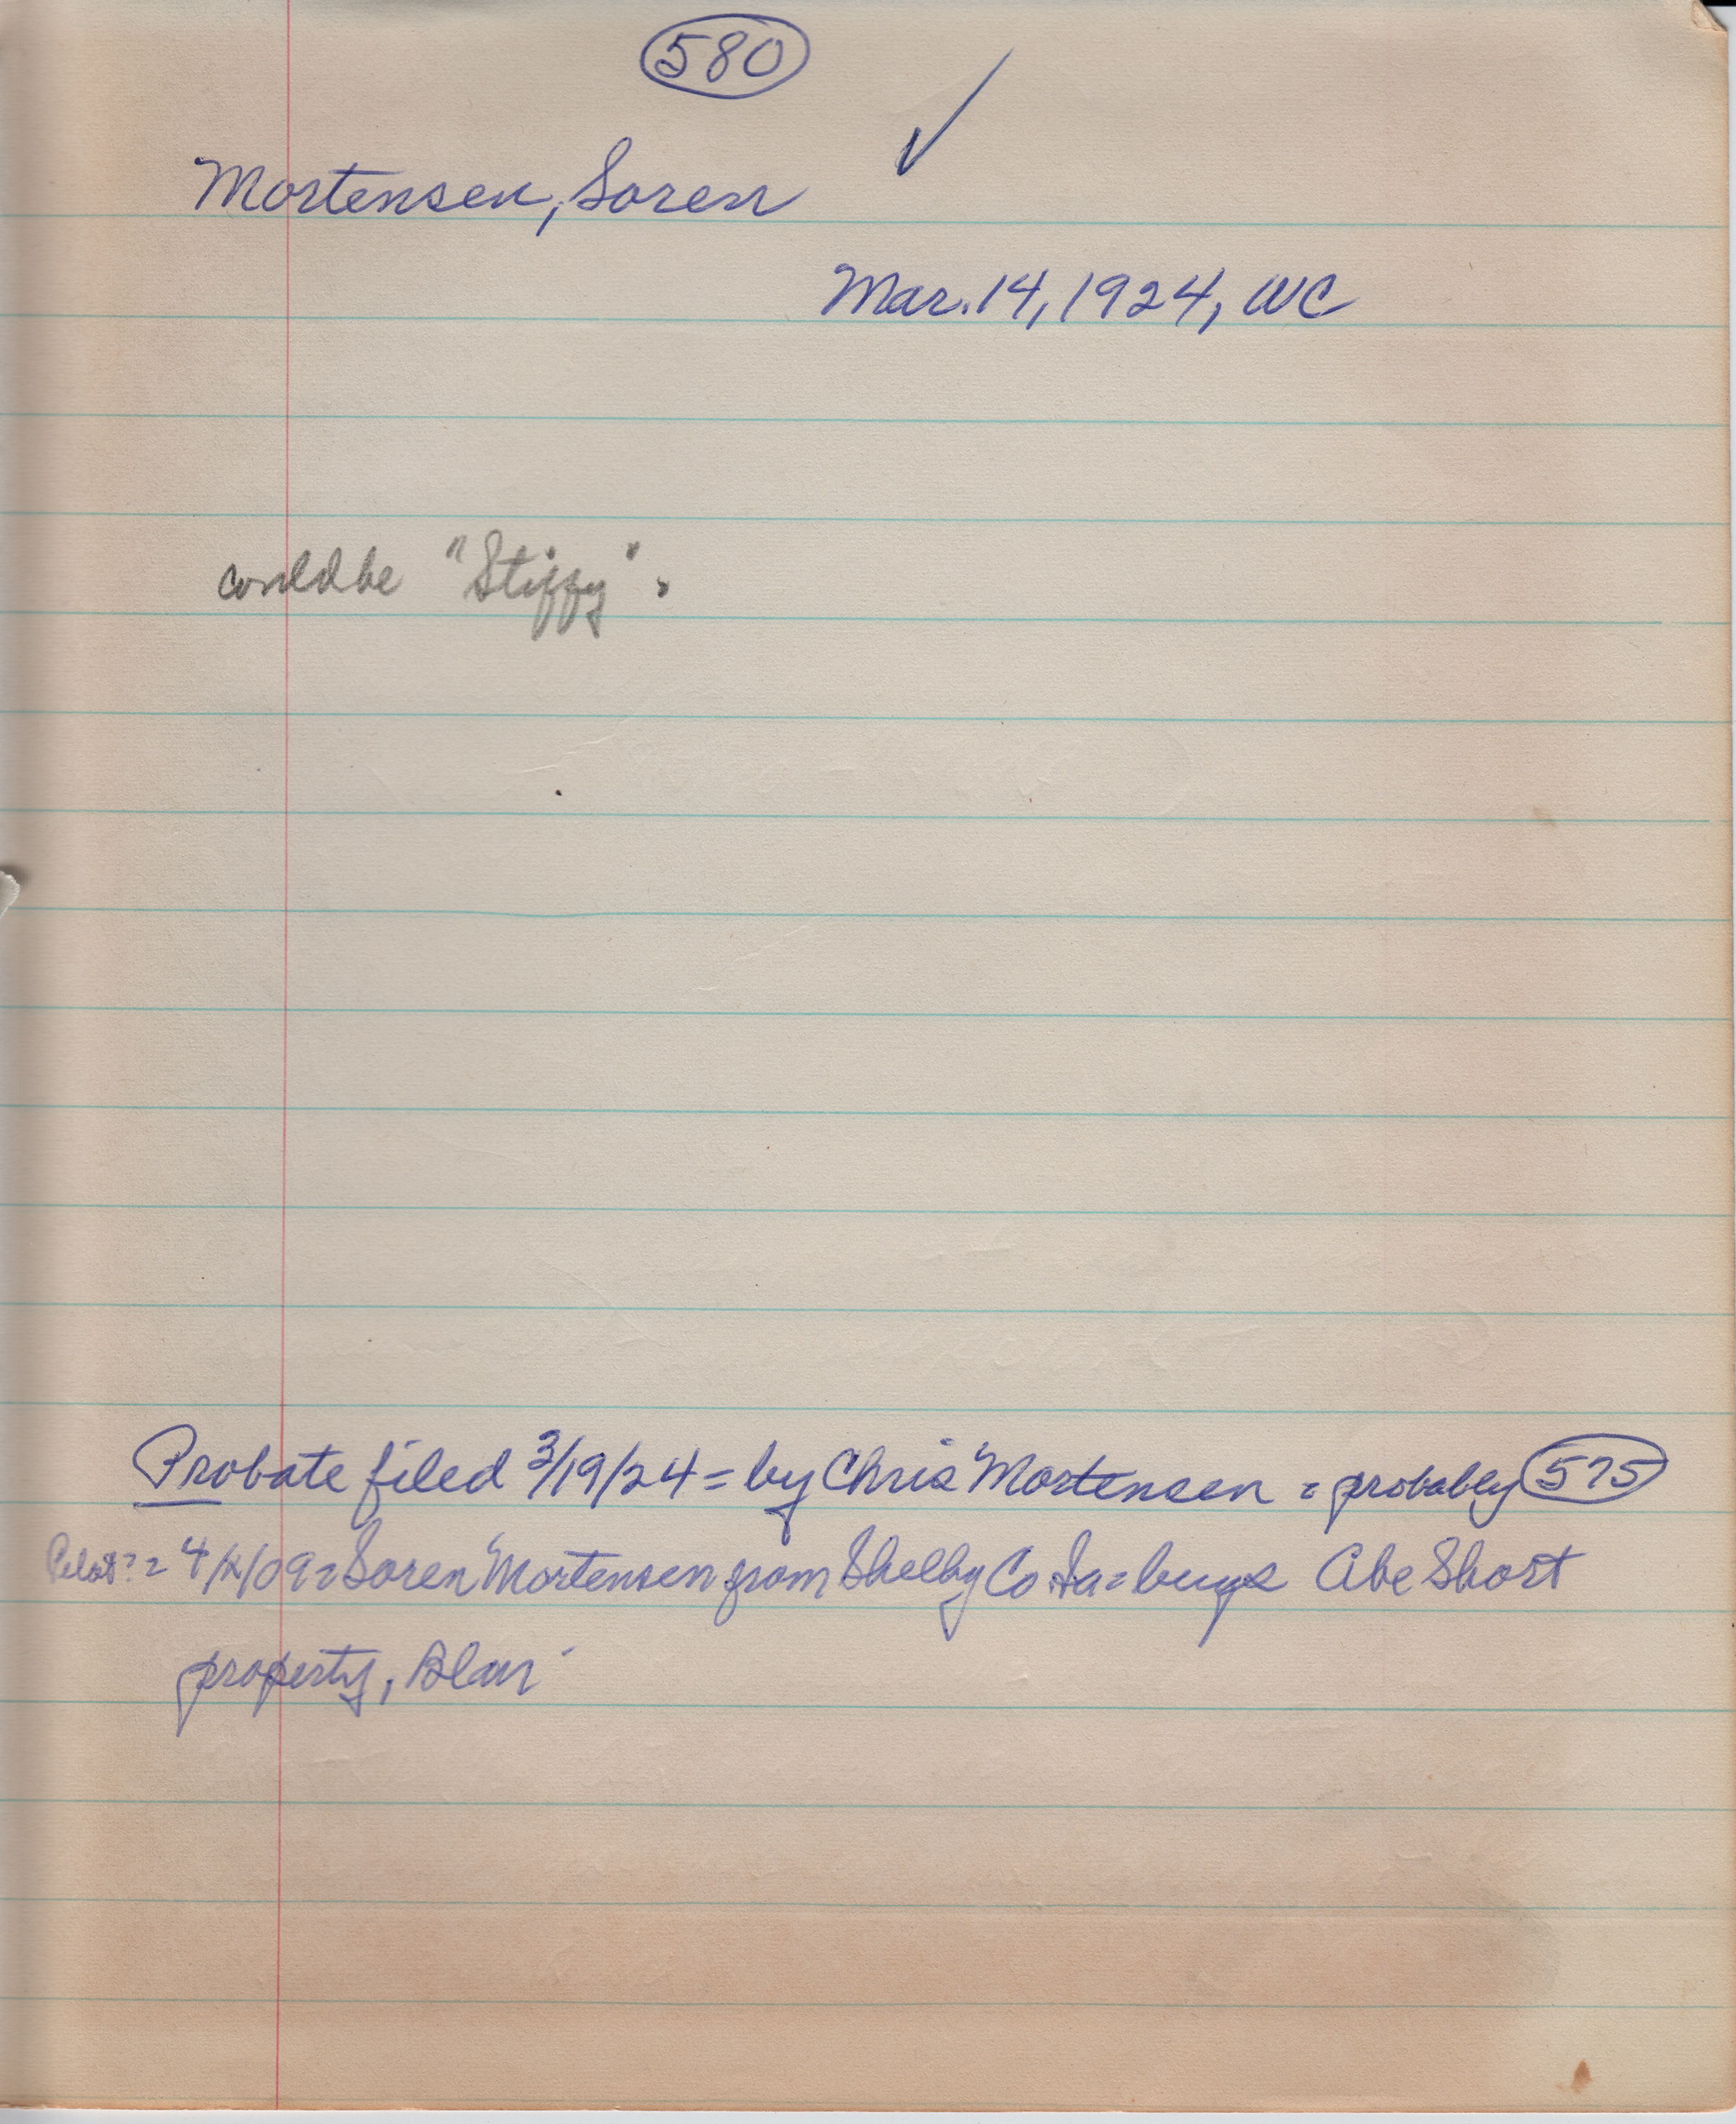 580
Mortensen, Soren
Mar. 14, 1924, WC
could be "Stiffy".
Probate filed 3/19/24 = by Chris Mortensen = probably 575
= 4/2/09 = Soren Mortensen from Shelby Co Ia = buys Abe Short
property, Blair